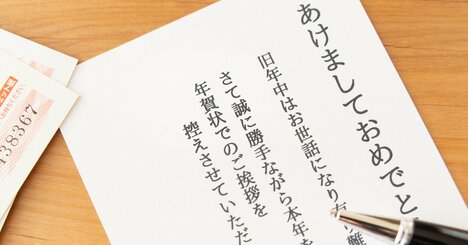 あけましておめでと
旧年中はお世話になり有難
さて誠に勝手ながら本年を
年賀状でのご挨拶を
控えさせていただ
438367